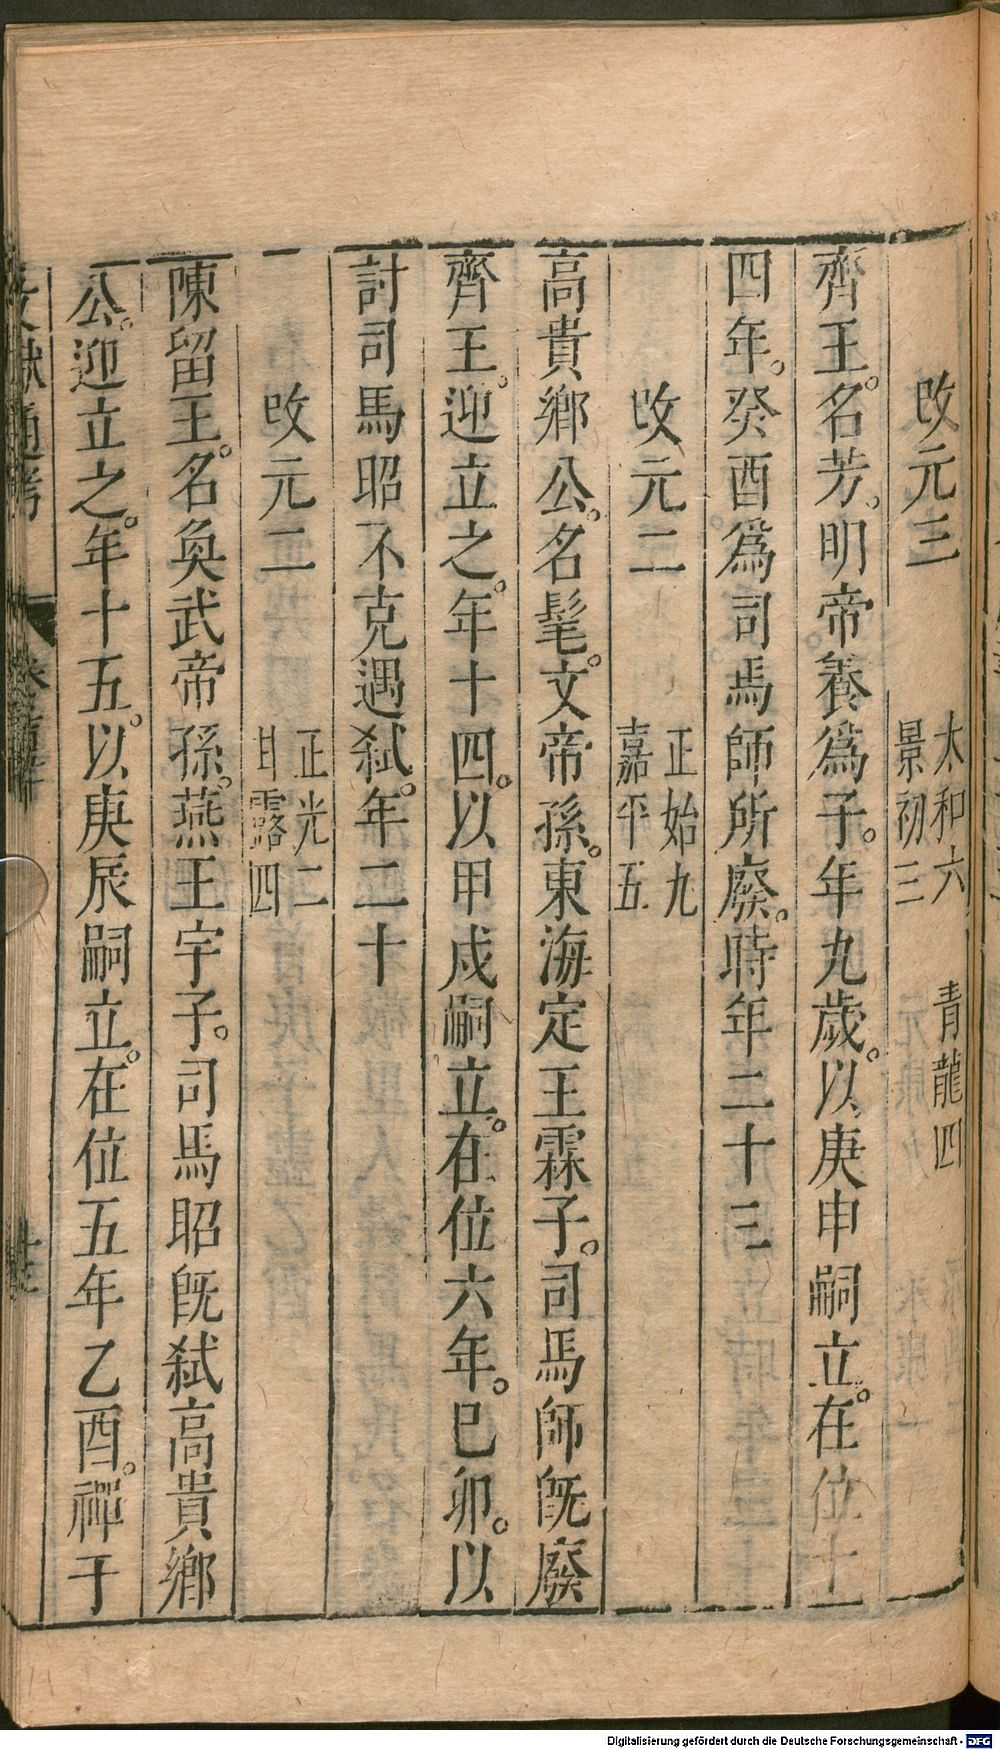 改元三 太和六 青龍四
景初三
齊王。名芳。明帝養爲子。年九歲。以庚申嗣立。在位十
四年。癸酉爲司馬師所廢。時年二十三
改元二 正始九
嘉平五
高貴鄉公。名髦。文帝孫。東海定王霖子。司馬師旣廢
齊王。迎立之。年十四。以甲戌嗣立。在位六年。巳卯。以
討司馬昭不克遇弑。年二十
改元二 正光二
甘露四
陳留王。名奐武帝孫。燕王宇子。司馬昭旣弑高貴鄉
公。迎立之。年十五。以庚辰嗣立。在位五年乙酉。禪于
文獻通考
Digitalisierung gefördert durch die Deutsche Forschungsgemeinschaft - DFG